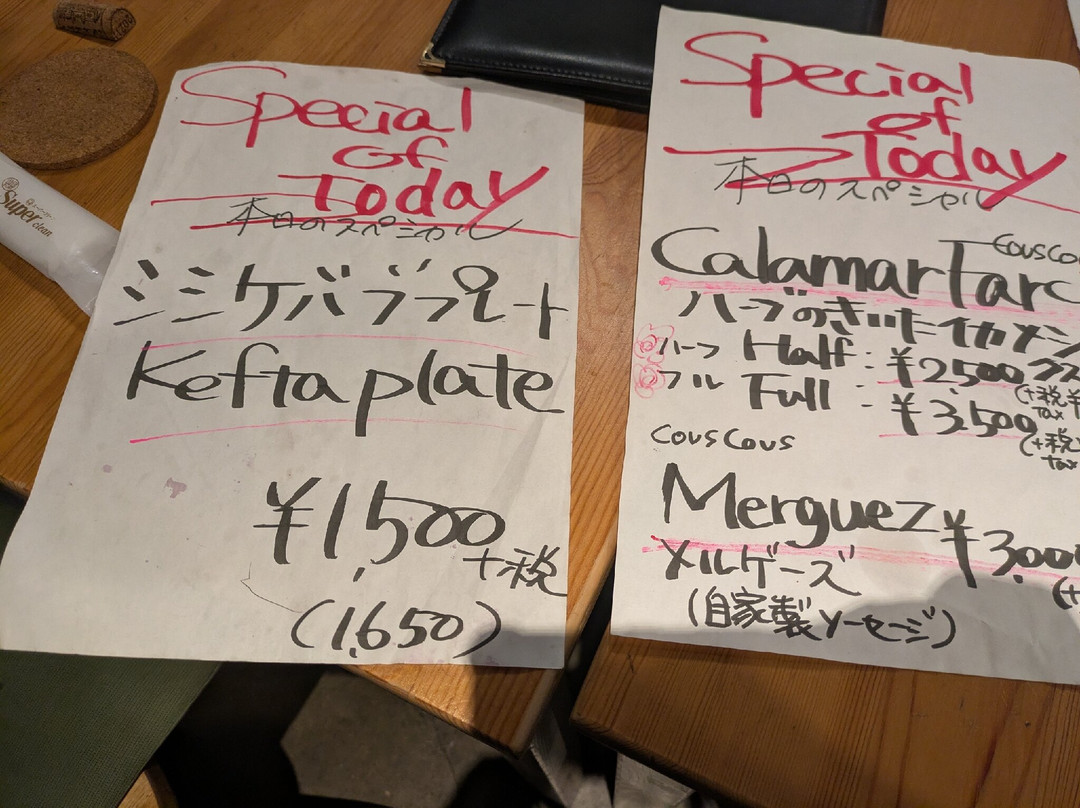 Special
of
Today
本日のスペシャル
シシケバブプレート
Kefta plate
¥1,500
+税
(1,650)
Super
clear
Special
of
Today
本日のスペシャル
Calamar Farc
Cousco
ハーブのきいたイカメシ
ハーフ Half : ¥2,500
クス
(+税
tax
フル Full : ¥3,500
(+税
tax
Couscous
Merguez ¥3,00
メルゲーズ
(+
(自家製ソーセージ)